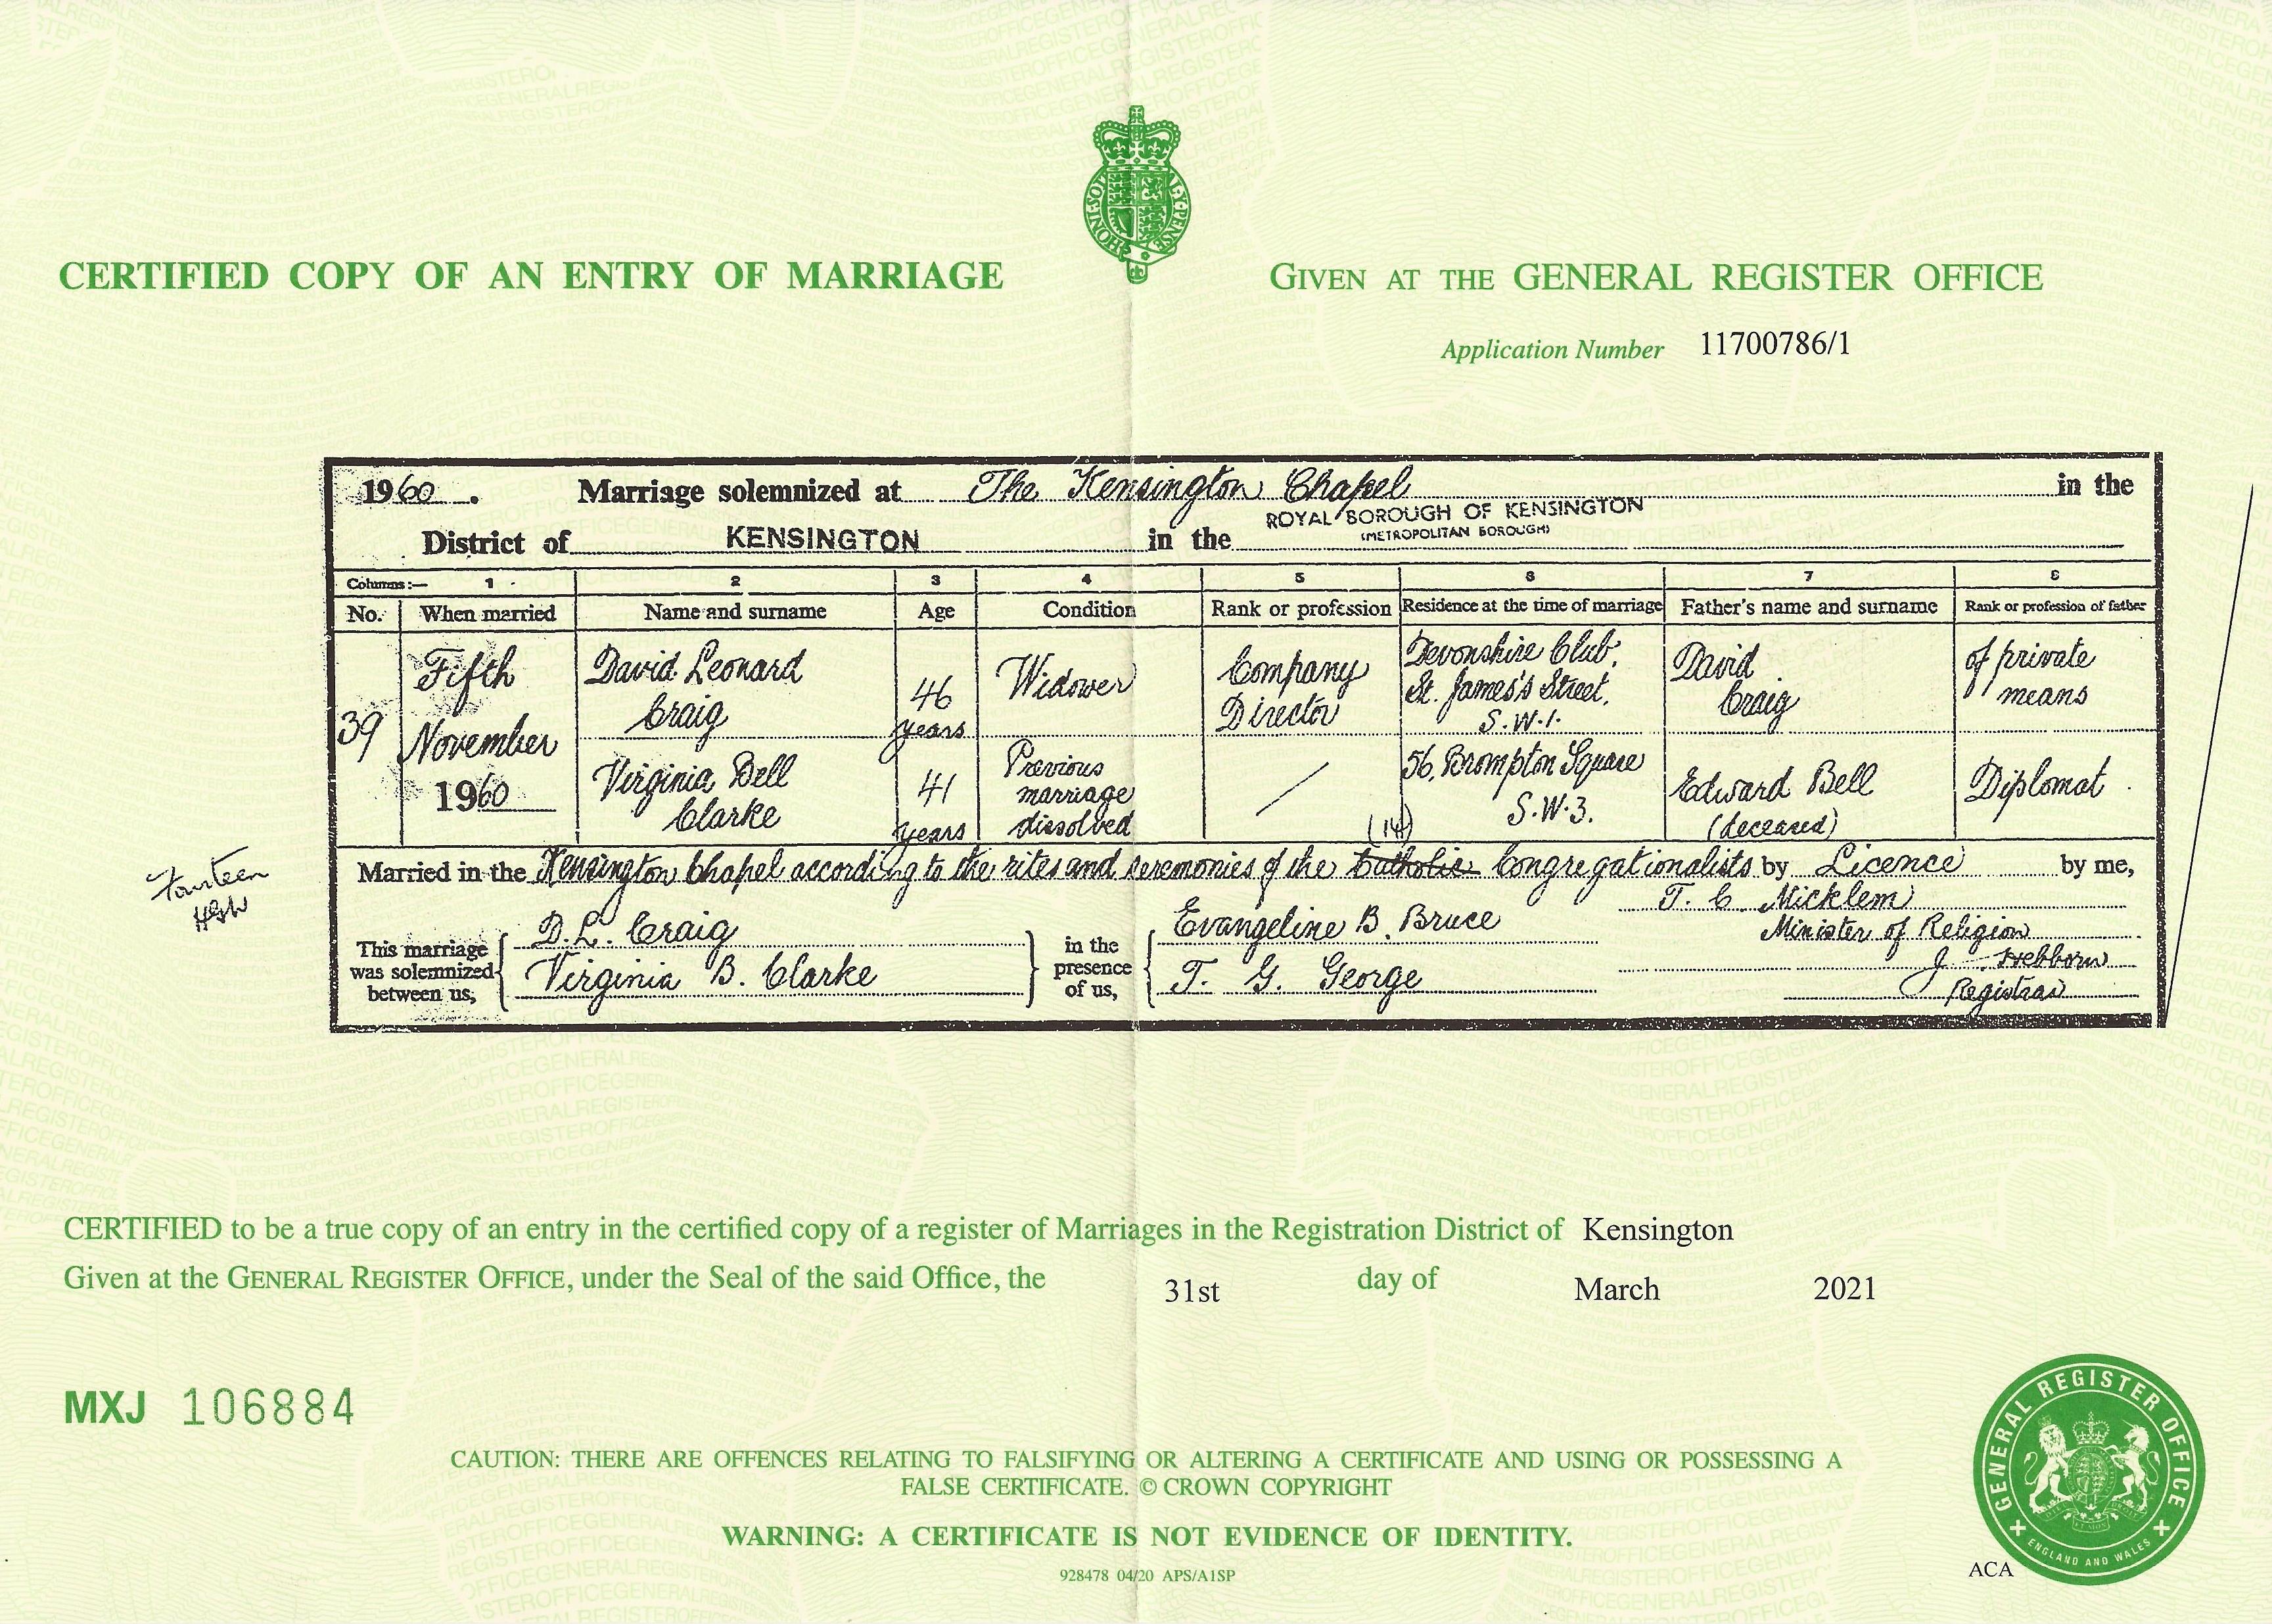 HONI·SOIT·QUI·MAL·Y·PENSE
CERTIFIED COPY OF AN ENTRY OF MARRIAGE
GIVEN AT THE GENERAL REGISTER OFFICE
Application Number 11700786/1
1960. Marriage solemnized at The Kensington Chapel in the
District of KENSINGTON in the ROYAL BOROUGH OF KENSINGTON
(METROPOLITAN BOROUGH)
Columns:— 1 2 3 4 5 6 7 8
No. When married Name and surname Age Condition Rank or profession Residence at the time of marriage Father's name and surname Rank or profession of father
39
Fifth
November
1960
David Leonard
Craig
46
years
Widower
Company
Director
Devonshire Club,
St. James's Street,
S.W.1.
David
Craig
of private
means
Virginia Bell
Clarke
41
years
Previous
marriage
dissolved
/
56, Brompton Square
S.W.3.
Edward Bell
(deceased)
Diplomat
(14)
Married in the Kensington Chapel according to the rites and ceremonies of the Catholic Congregationalists by Licence by me,
Fourteen
This marriage
was solemnized
between us,
D.L. Craig
Virginia B. Clarke
in the
presence
of us,
Evangeline B. Bruce
T. G. George
T. C. Micklem
Minister of Religion
J Hebborn
Registrar
CERTIFIED to be a true copy of an entry in the certified copy of a register of Marriages in the Registration District of Kensington
Given at the GENERAL REGISTER OFFICE, under the Seal of the said Office, the 31st day of March 2021
MXJ 106884
CAUTION: THERE ARE OFFENCES RELATING TO FALSIFYING OR ALTERING A CERTIFICATE AND USING OR POSSESSING A
FALSE CERTIFICATE. © CROWN COPYRIGHT
WARNING: A CERTIFICATE IS NOT EVIDENCE OF IDENTITY.
928478 04/20 APS/A1SP
GENERAL REGISTER OFFICE
ENGLAND AND WALES
ACA